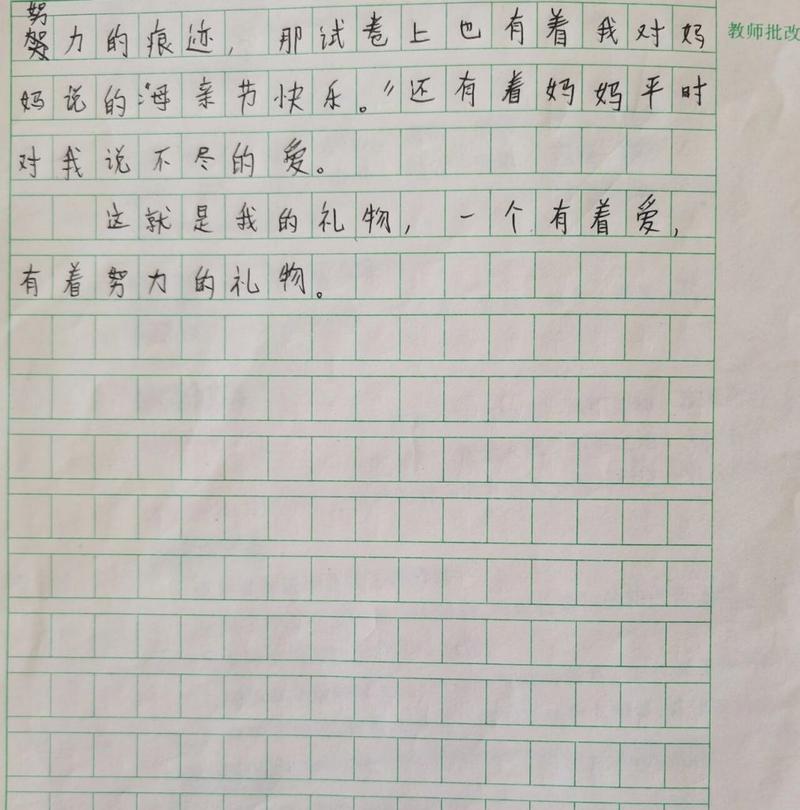 努力的痕迹，那试卷上也有着我对妈
妈说的“母亲节快乐。”还有着妈妈平时
对我说不尽的爱。
这就是我的礼物，一个有着爱，
有着努力的礼物。
教师批改